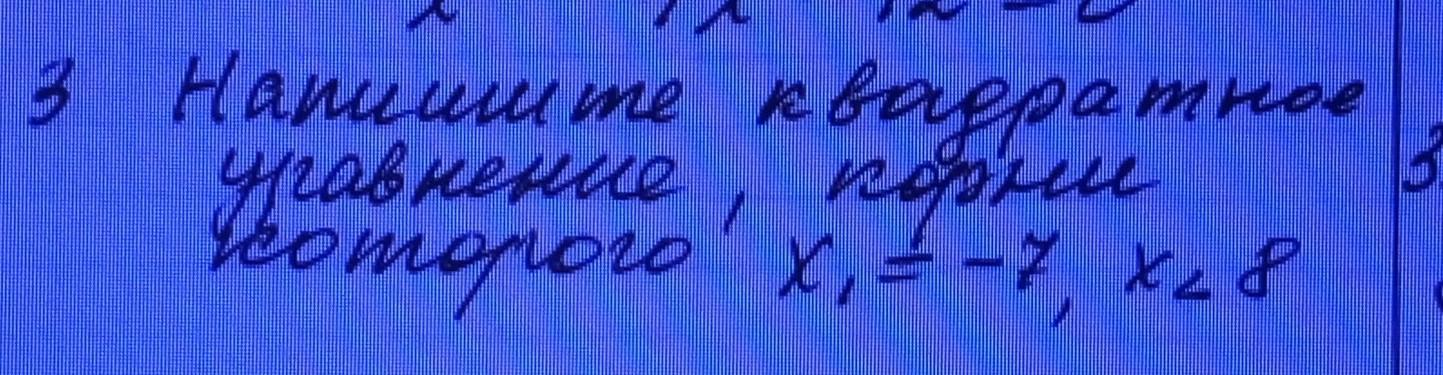 3 Напишите квадратное
уравнение, корни
которого x₁ = -7, x₂ 8
3